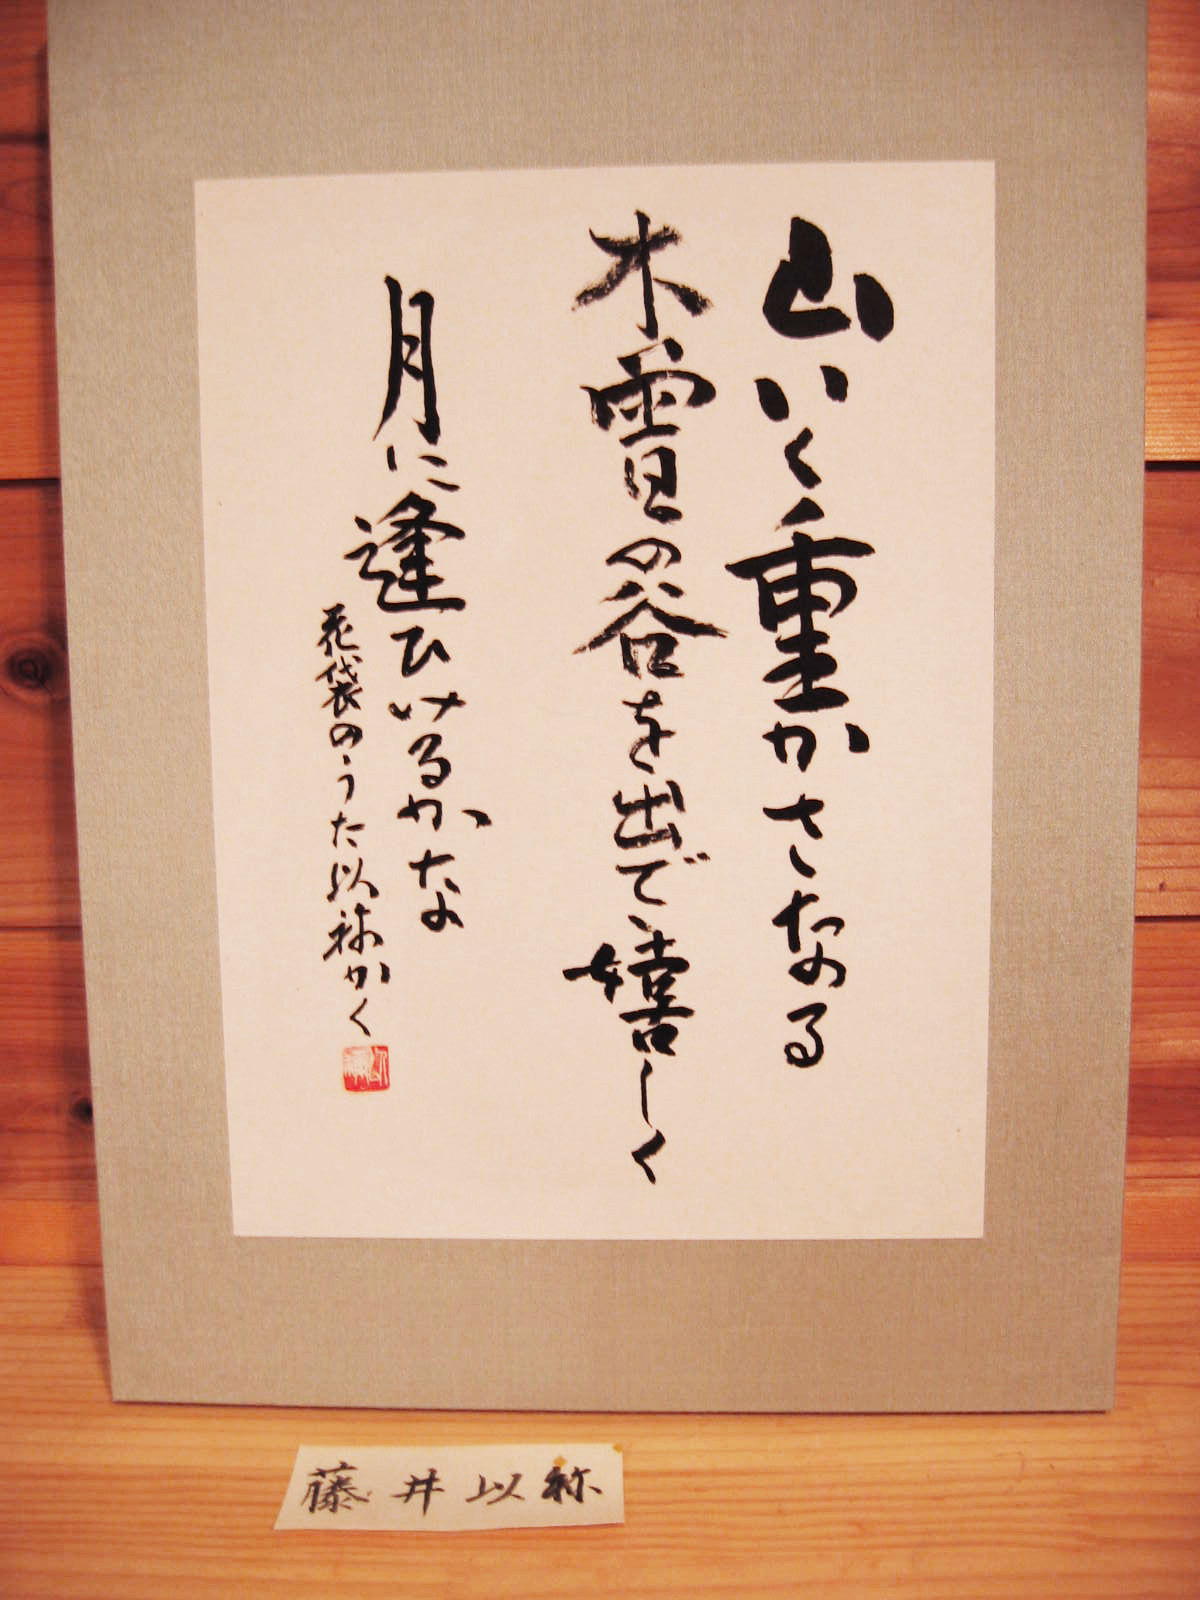 山いく重かさなる
木曽の谷を出で嬉しく
月に逢ひけるかな
花袋のうた以祢かく
藤井以祢